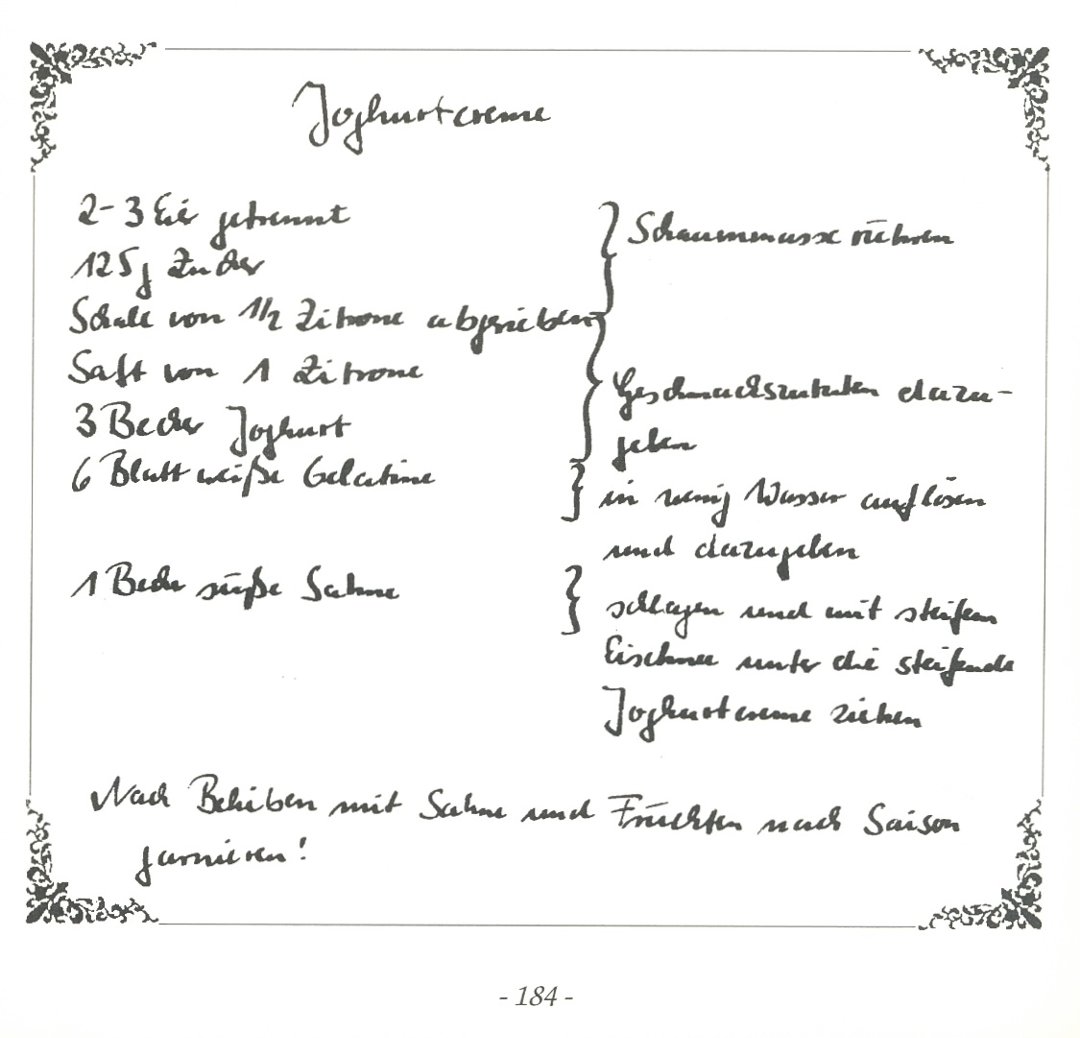 Joghurtcreme
2-3 Eier getrennt
125 g Zucker
Schale von 1/2 Zitrone abgerieben
} Schaummasse rühren
Saft von 1 Zitrone
3 Becher Joghurt
} Geschmackszutaten dazu-
geben
6 Blatt weiße Gelatine
} in wenig Wasser auflösen
und dazugeben
1 Becher süße Sahne
} schlagen und mit steifem
Eischnee unter die steifende
Joghurtcreme ziehen
Nach Belieben mit Sahne und Früchten nach Saison
garnieren!
- 184 -